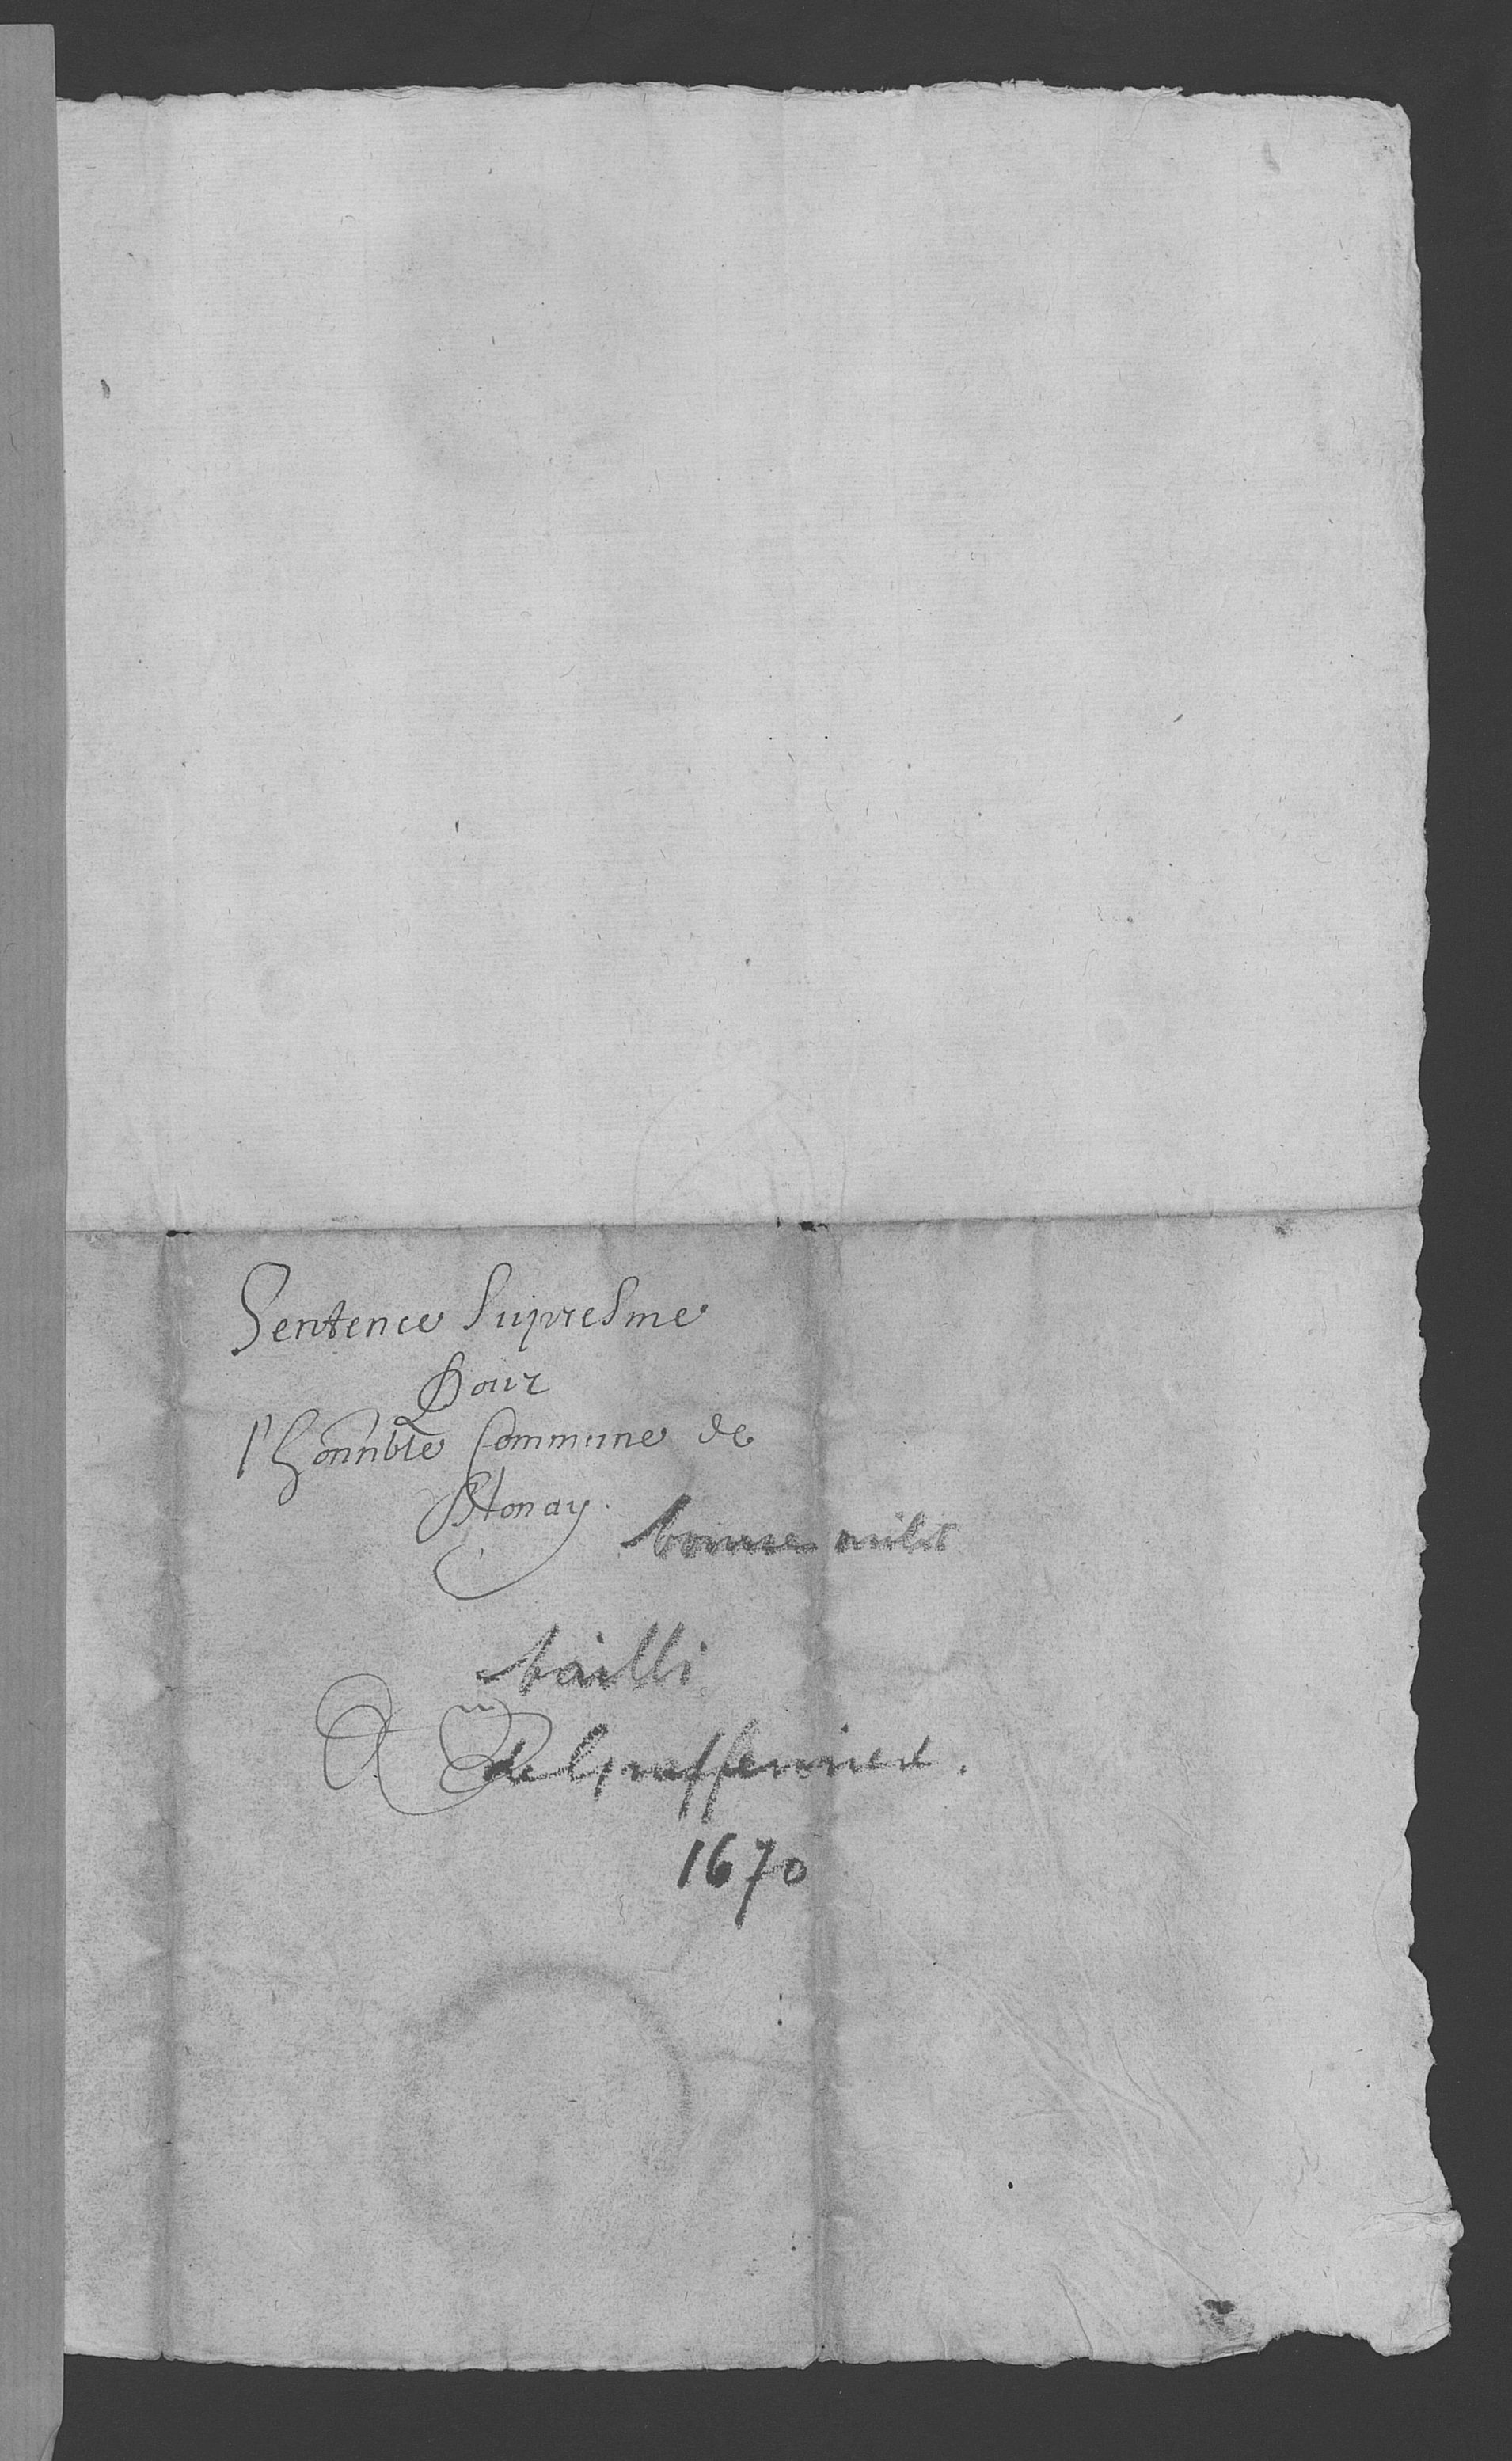 Sentence Supresme
Pour
l'honnble Commune de
Blonay.
bourse milit
bailli
de Graffenried.
1670